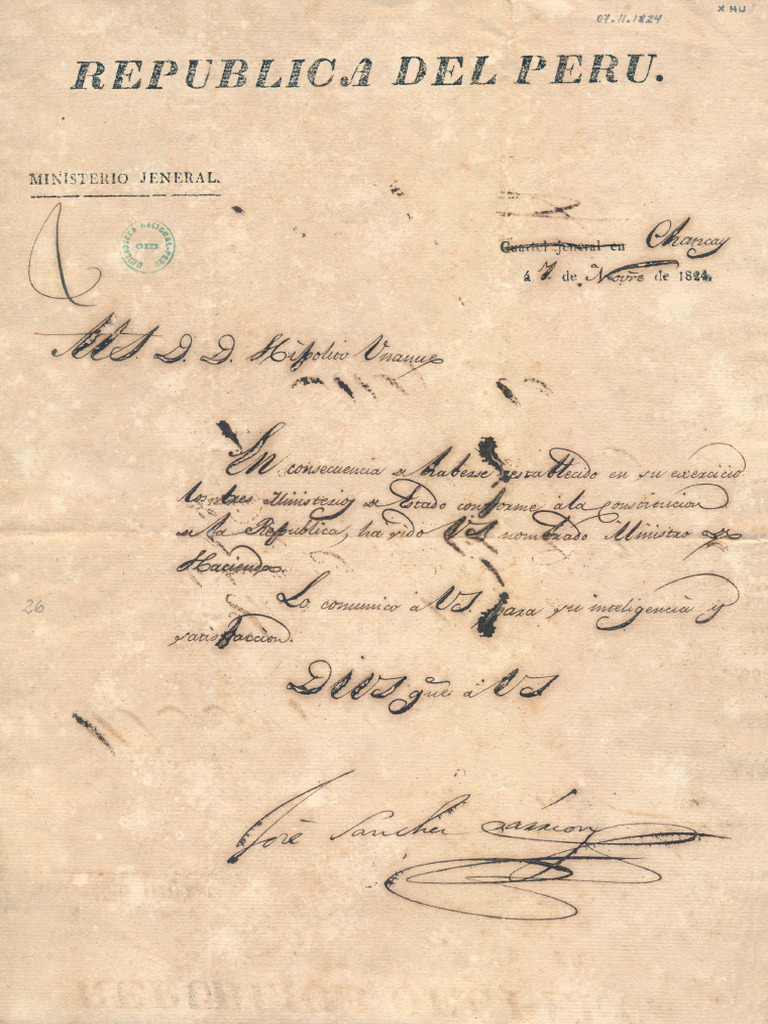 07.11.1824
X HU
REPUBLICA DEL PERU.
MINISTERIO JENERAL.
BIBLIOTECA NACIONAL-PERU
Cuartel jeneral en Chancay
á 7 de Novre de 1824.
A VS D. D. Hipolito Unanue
En consecuencia de haberse restablecido en su exercicio
los tres Ministerios de Estado conforme á la constitucion
de la Republica, ha sido VS nombrado Ministro de
Hacienda.
Lo comunico á VS. para su inteligencia y
satisfaccion.
26
Dios gue á VS
José Sanchez Carrion